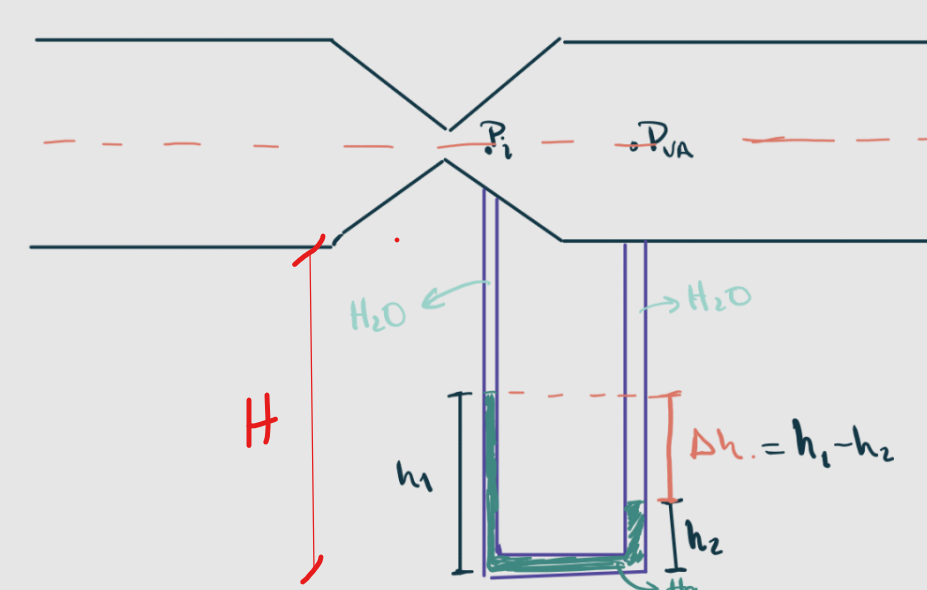 Pi
PVA
H2O
H2O
H
h1
Δh. = h1-h2
h2